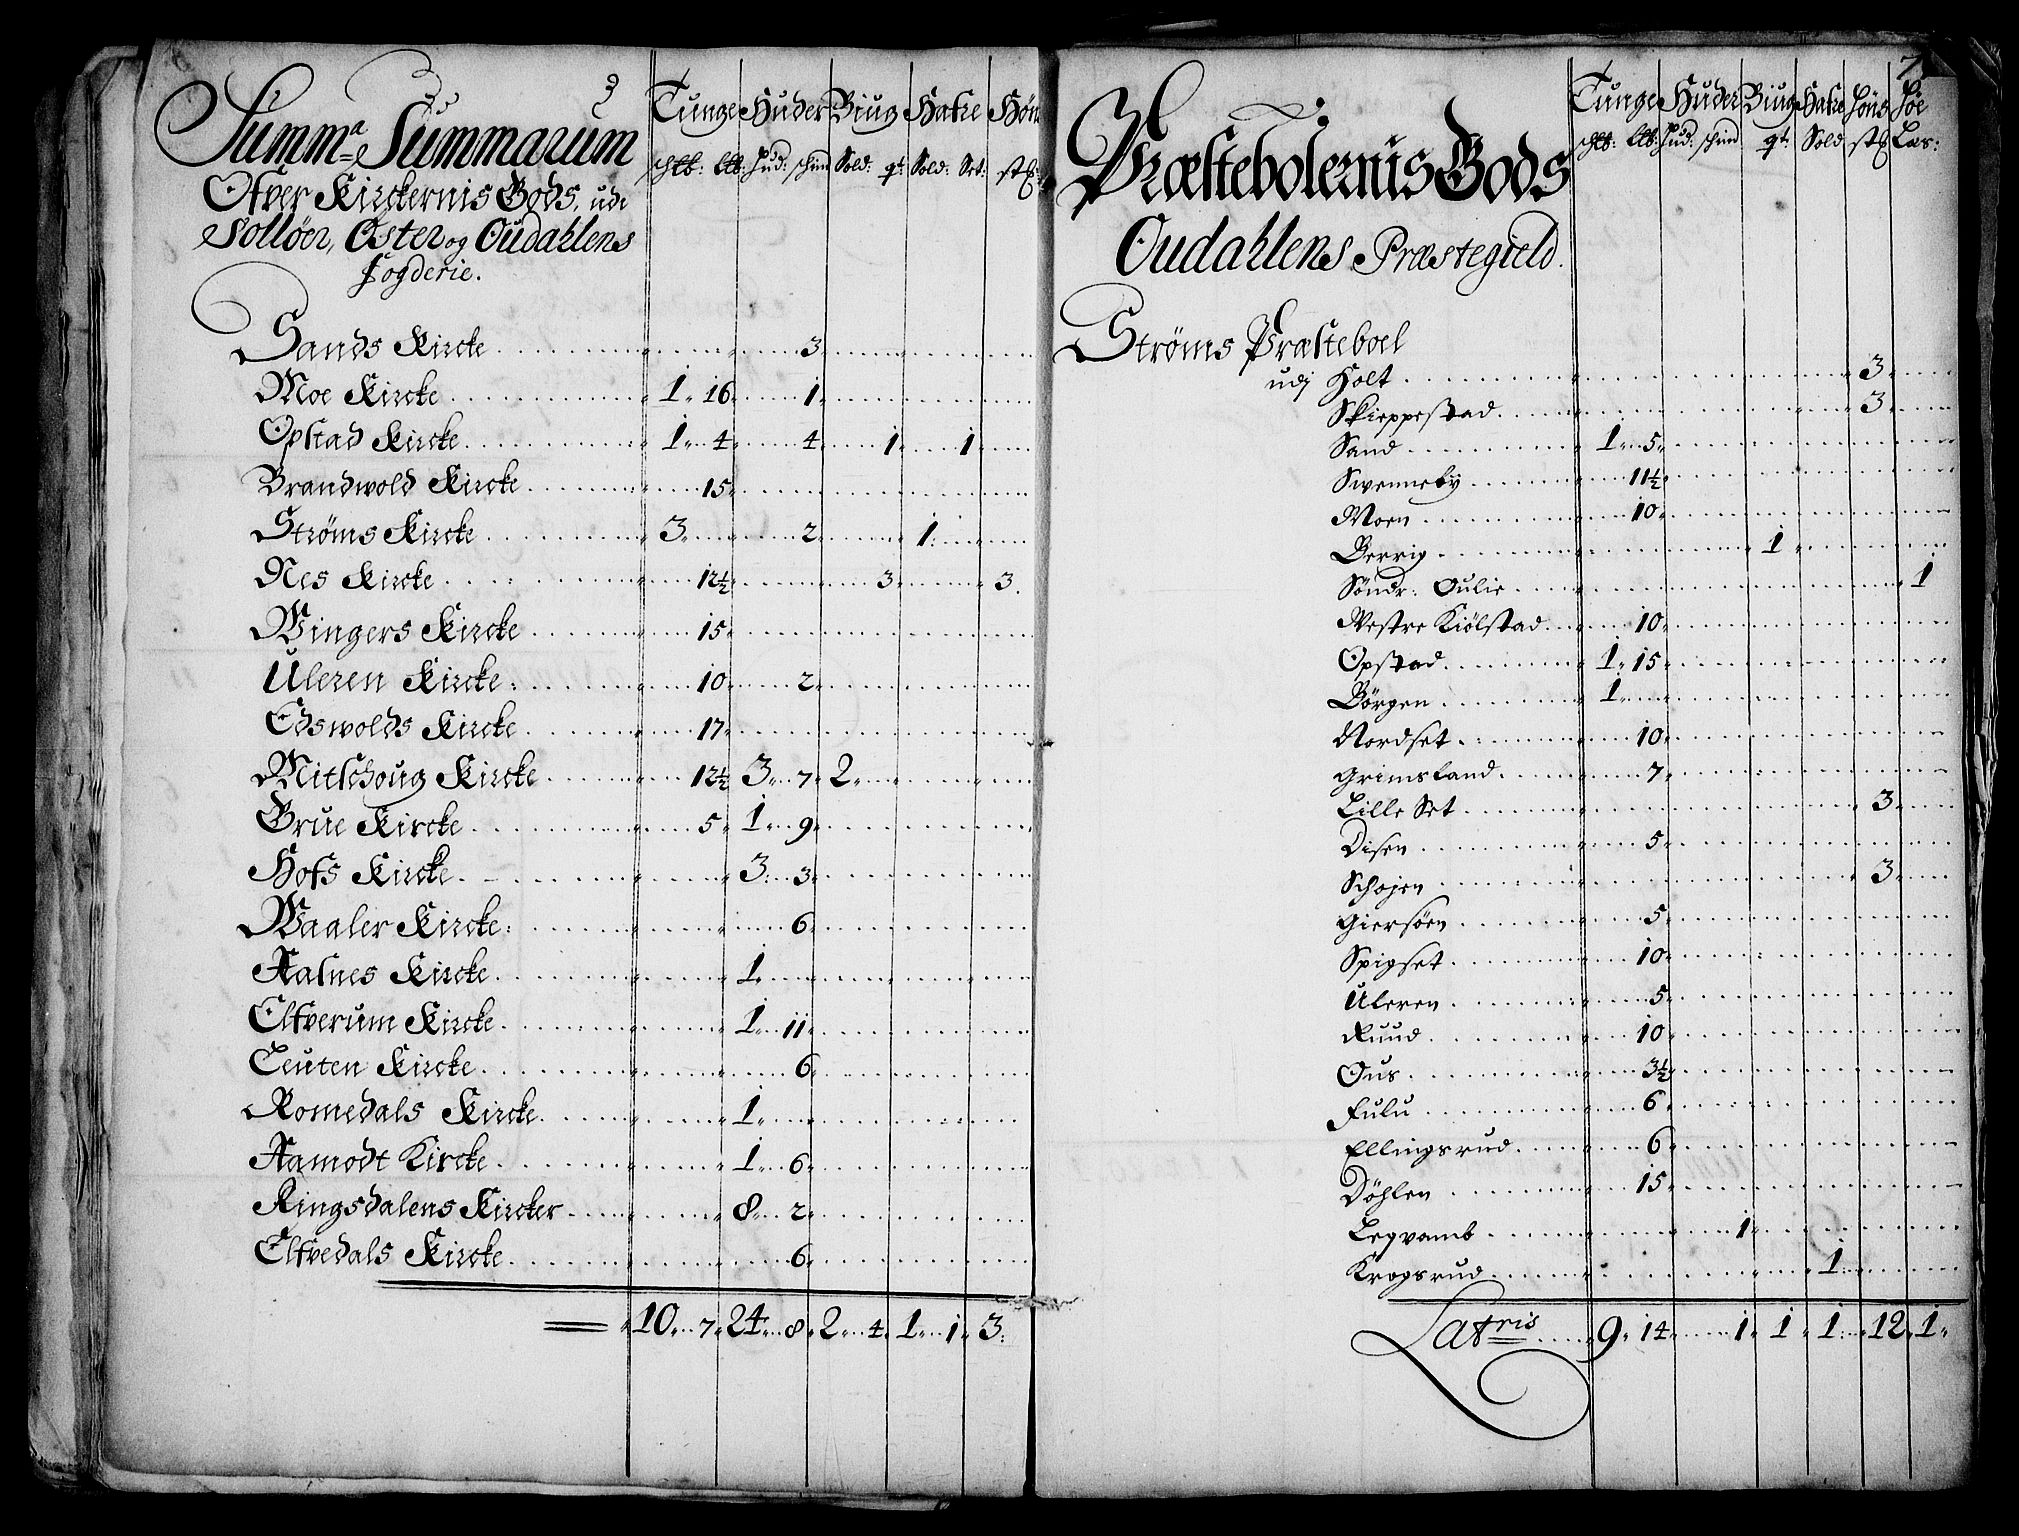 Summa Summarum
Ofver Kirckernis Gods, udi
Solløer, Øster og Oudahlens
fogderie.
Tunge Huder Biug Hafre Høns
schtb: ltb: Hud: schind Sold: qt: Sold: Set: stk:
Sands Kircke 3
Moe Kircke 1 16 1
Opstad Kircke 1 4 4 1 1
Brandwold Kircke 15
Strøms Kircke 3 2 1
Nes Kircke 12½ 3 3
Wingers Kircke 15
Uleren Kircke 10 2
Edswolds Kircke 17
Mitschoug Kircke 12½ 3 7 2
Grue Kircke 5 1 9
Hofs Kircke 3 3
Waaler Kircke 6
Aasnes Kircke 1
Elfverum Kircke 1 11
Teuten Kircke 6
Romedals Kircke 1
Aamodt Kircke 1 6
Ringsdalens Kircker 8 2
Elfvedals Kircke 6
10 7 24 8 2 4 1 1 3
7
Præstebolernis Gods
Oudahlens Præstegield.
Tunge Huder Biug Hafre Høns Høe
schtb: ltb: Hud: schind qt: Sold: stk Læs:
Strøms Præsteboel
udj Holt 3
Skieppestad 3
Sand 1 5
Swenneby 11½
Moen 10
Berrig 1
Söndr: Oulie 1
Westre Kiölstad 10
Opstad 1 15
Börgen 1
Nordset 10
Grimsland 7
Lille Set 3
Disen 5
Schojen 3
Giersöen 5
Spigset 10
Uleren 5
Ruud 10
Ous 3½
Fulu 6
Ellingsrud 6
Döhlen 15
Legvamb 1
Krogsrud 1
Latris 9 14 1 1 1 12 1